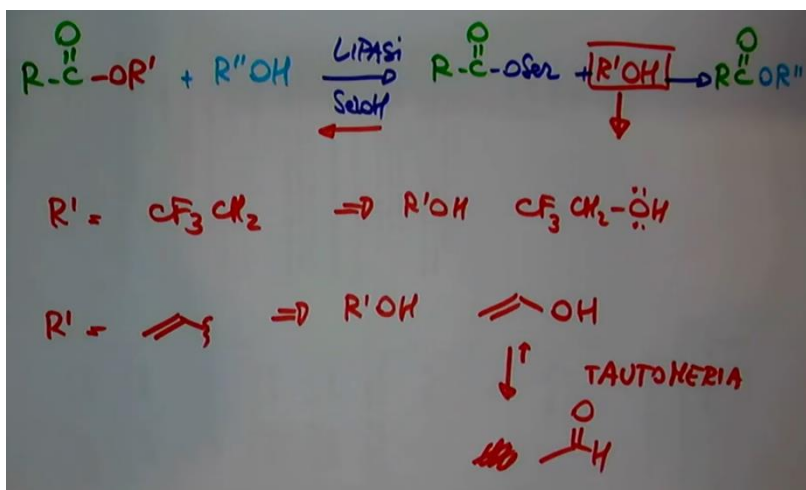 R-C(=O)-OR' + R"OH LIPASI SerOH R-C(=O)-OSer + R'OH → RC(=O)OR"
R' = CF3CH2 ⇒ R'OH CF3CH2-ÖH
R' = ⇒ R'OH OH
TAUTOMERIA
O
H